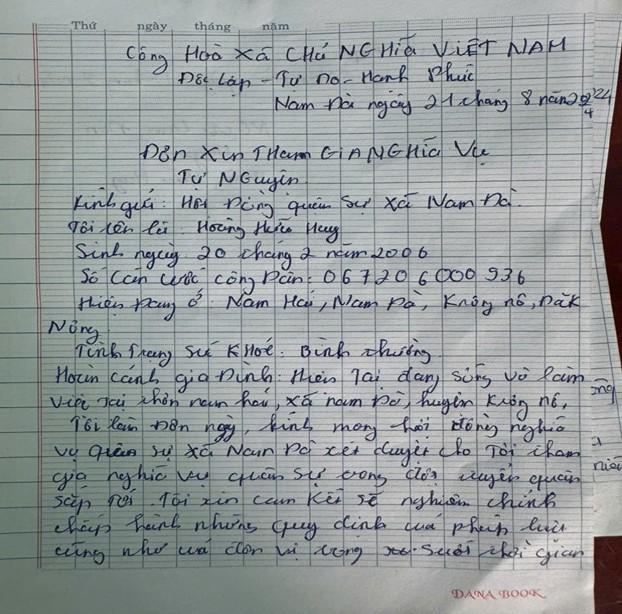 Thứ ngày tháng năm
Cộng Hoà Xã Chủ NGHĩa VIỆT NAM
Độc Lập - Tự Do - Hạnh Phúc
Nam Đà ngày 21 tháng 8 năm 2024
Đơn Xin THam GIA NGHĩa Vụ
Tự Nguyện
Kính gửi: Hội Đồng quân sự xã Nam Đà.
Tôi tên là: Hoàng Hữu Huy
Sinh ngày 20 tháng 2 năm 2006
Số Căn cước công Dân: 067206000936
Hiện Đang ở: Nam Hải, Nam Đà, Krông nô, Đăk
Nông.
Tình Trạng Sức KHoẻ: Bình thường.
Hoàn cảnh gia Đình: Hiện Tại đang sống và làm
việc tại thôn nam hải, xã nam Đà, huyện Krông nô,
Tôi làm Đơn này, kính mong hội đồng nghĩa
vụ quân sự xã Nam Đà xét duyệt cho Tôi tham
gia nghĩa vụ quân sự trong đợt tuyển quân
sắp tới. Tôi xin cam kết sẽ nghiêm chỉnh
chấp hành những quy định của pháp luật
cũng như của đơn vị trong suốt thời gian
DANA BOOK